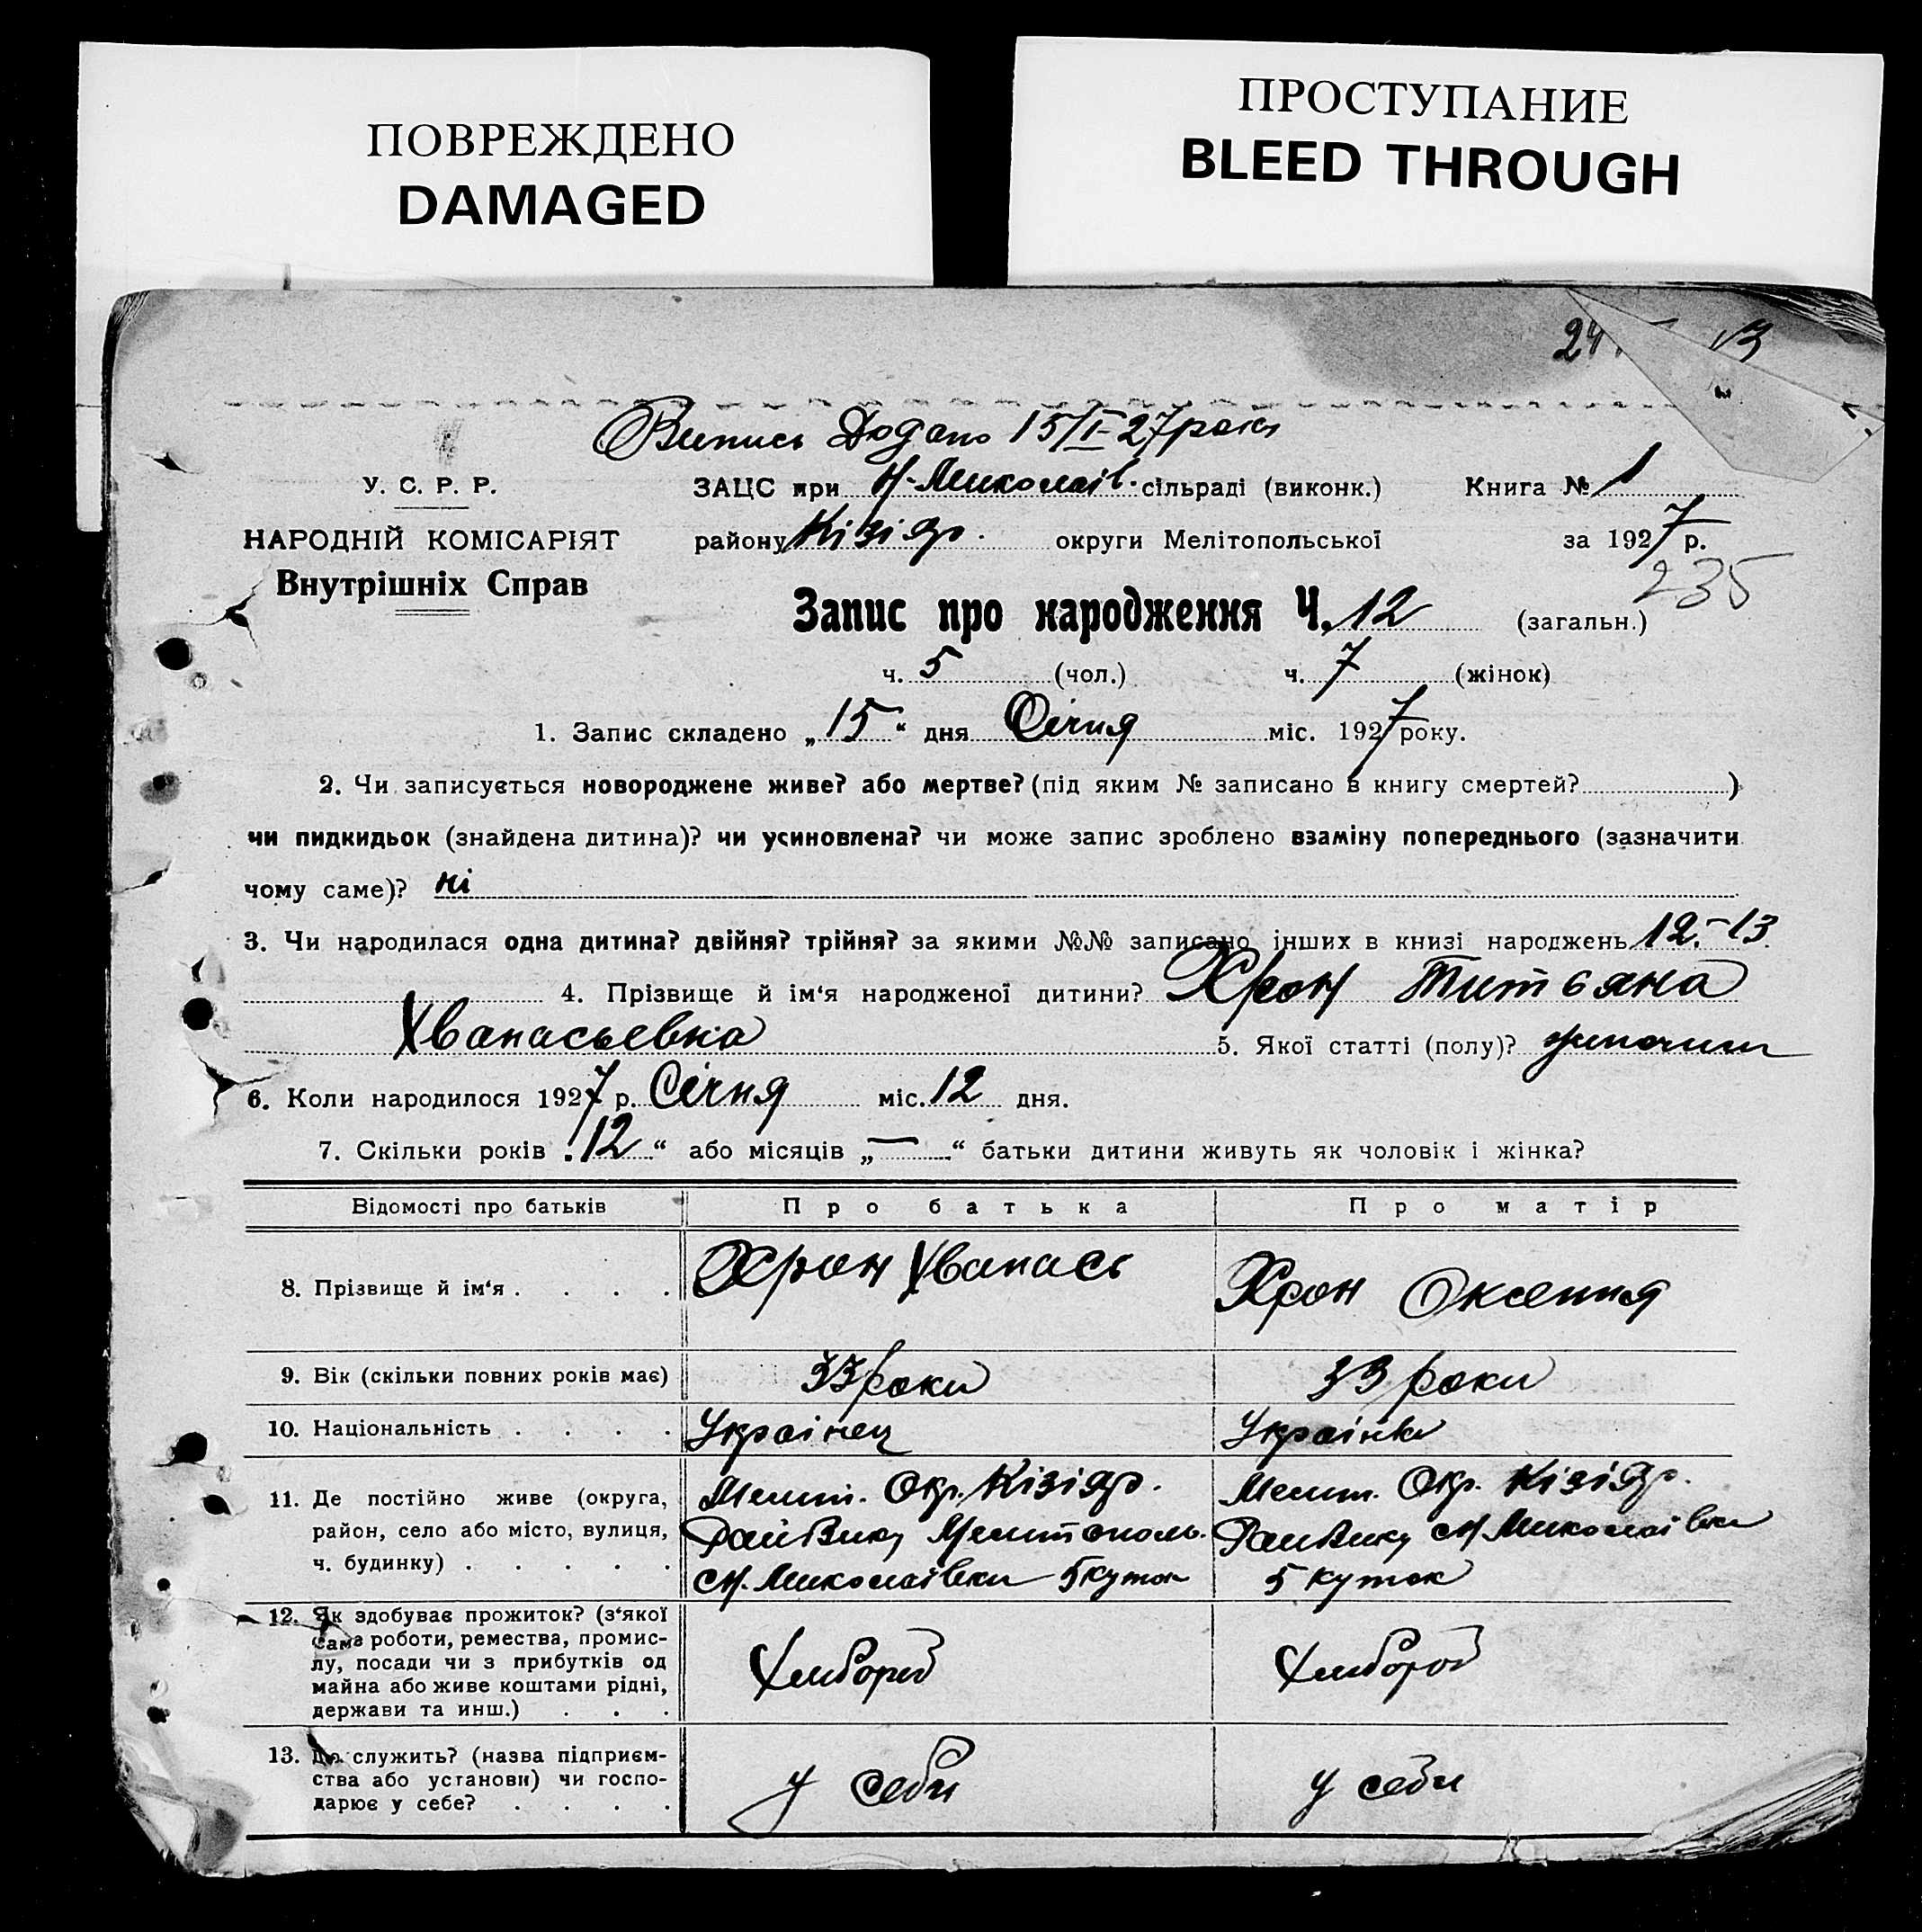 ПОВРЕЖДЕНО
DAMAGED
ПРОСТУПАНИЕ
BLEED THROUGH
24
13
Випись Додано 15/I-27 роки
У. С. Р. Р.
НАРОДНІЙ КОМІСАРІЯТ
Внутрішніх Справ
ЗАЦС при Н-Миколаів. сільраді (виконк.) Книга № 1
району Кізіяр. округи Мелітопольської за 1927 р.
235
Запис про народження Ч. 12 (загальн.)
ч. 5 (чол.) ч. 7 (жінок)
1. Запис складено „15“ дня Січня міс. 1927 року.
2. Чи записується новороджене живе? або мертве? (під яким № записано в книгу смертей? )
чи пидкидьок (знайдена дитина)? чи усиновлена? чи може запис зроблено взаміну попереднього (зазначити
чому саме)? ні
3. Чи народилася одна дитина? двійня? трійня? за якими №№ записано інших в книзі народжень 12.-13.
4. Прізвище й ім'я народженої дитини? Хрон Титьяна
Хванасьевна 5. Якої статті (полу)?
6. Коли народилося 1927 р. Січня міс. 12 дня.
7. Скільки років „12“ або місяців „—“ батьки дитини живуть як чоловік і жінка?
Відомості про батьків Про батька Про матір
8. Прізвище й ім'я . . . . Хрон Хванась Хрон Оксенія
9. Вік (скільки повних років має) 33 роки 33 роки
10. Національність . . . . Украінец Украінка
11. Де постійно живе (округа,
район, село або місто, вулиця,
ч. будинку) . . . . .
Мелит. Окр. Кізіяр.
РайВику Мелитополь.
Н. Миколаівки 5 куток
Мелит. Окр. Кізіяр.
РайВику Н Миколаівки
5 куток
12. Як здобуває прожиток? (з'якої
сама роботи, ремества, промис-
лу, посади чи з прибутків од
майна або живе коштами рідні,
держави та инш.) . . .
Хлибороб Хлибороб
13. Де служить? (назва підприєм-
ства або установи) чи госпо-
дарює у себе? . . . .
у себи у себи